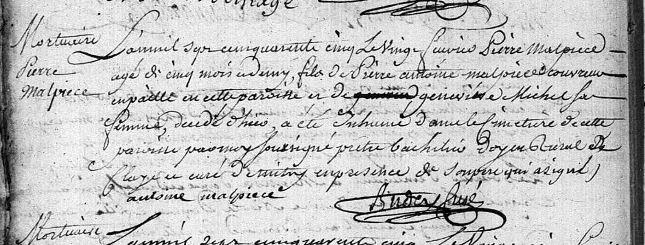 Mortuaire
Pierre
Malpiece
L'an mil sept cinquante cinq Le vingt fevrier Pierre Malpiece
agé de cinq mois et demy, fils de Pierre antoine malpiece couvreur
en paille en cette paroisse et de genevieve Michel sa
femme, decedé d'hier, a eté Inhumé dans le cimetiere de cette
paroisse par moy soussigné pretre bachelier Doyen Rural de
et curé de mitry en presence de son pere qui a signé
antoine malpiece
curé
Mortuaire
L'an mil sept cinquante cinq Le vingt